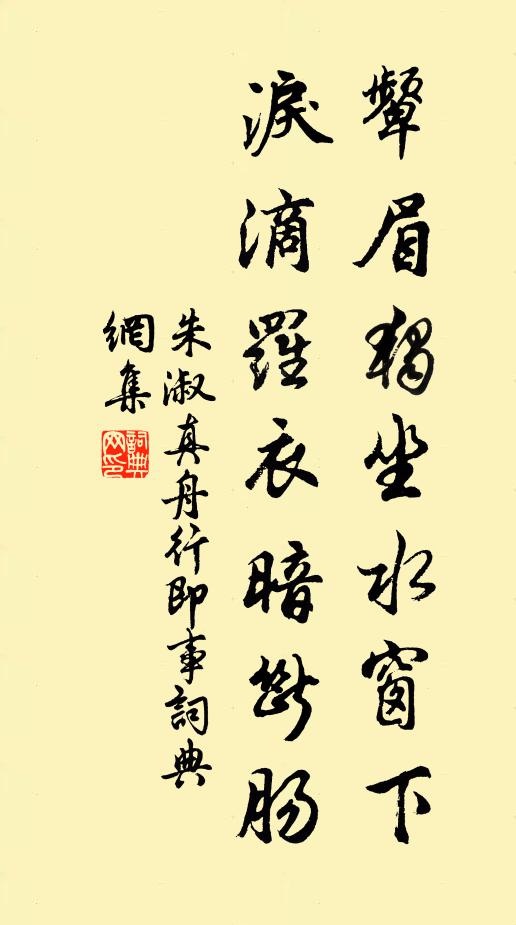 顰眉獨坐水窗下
淚滴羅衣暗斷腸
朱淑真舟行即事詞典
網集
詞典
网印